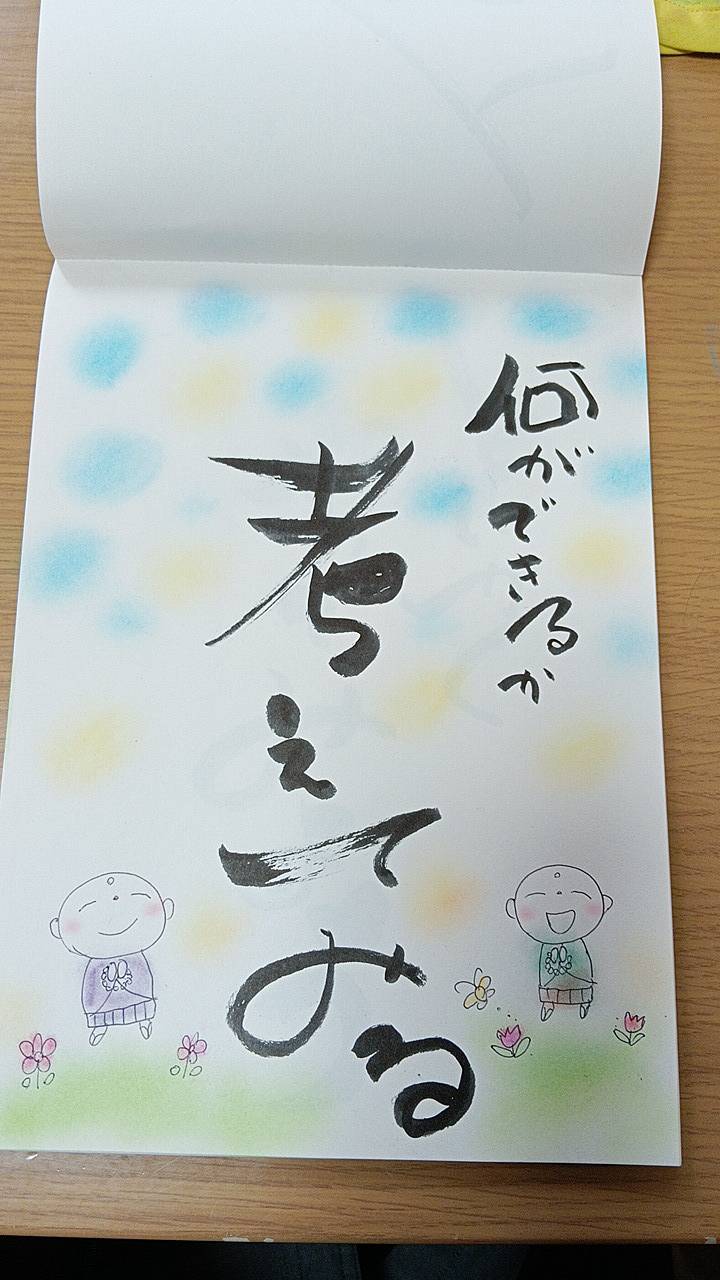 何ができるか
考えてみる